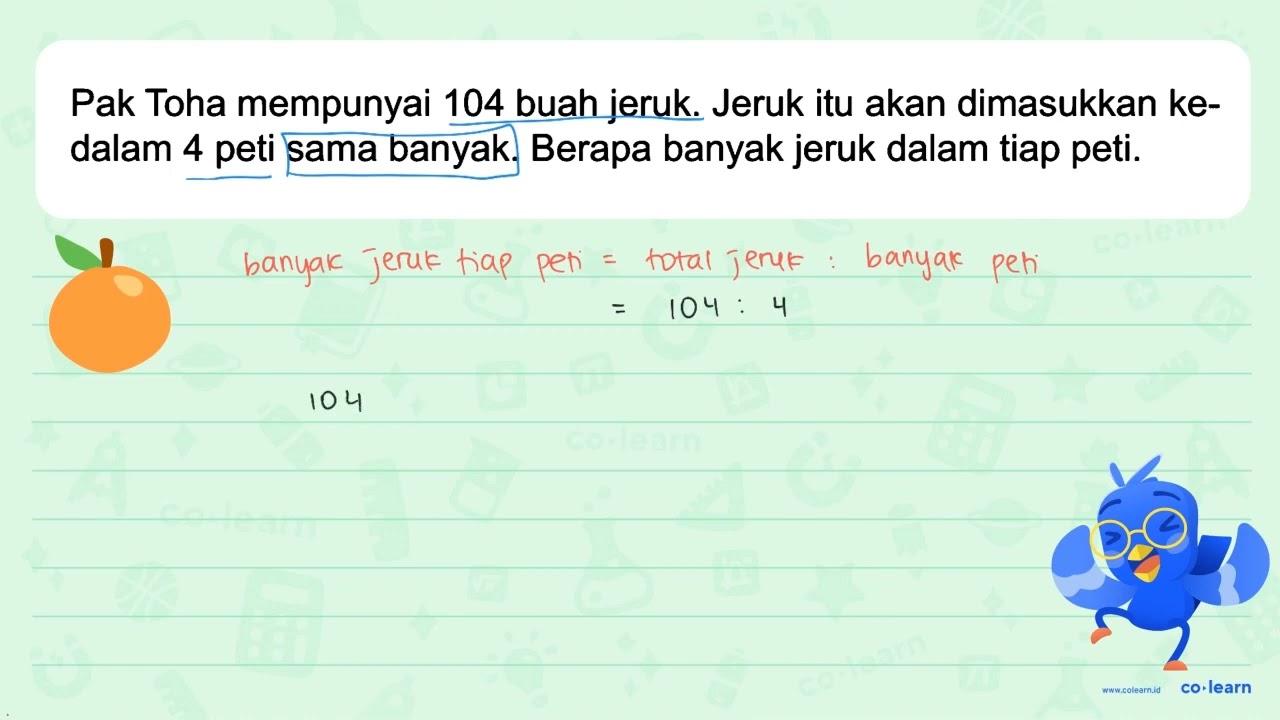 Pak Toha mempunyai 104 buah jeruk. Jeruk itu akan dimasukkan ke-
dalam 4 peti sama banyak. Berapa banyak jeruk dalam tiap peti.
banyak jeruk tiap peti = total jeruk : banyak peti
= 104 : 4
104
co·learn
co·learn
co·learn
co·learn
www.colearn.id co·learn